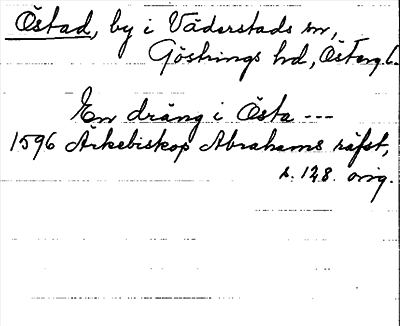 Östad, by i Väderstads sn,
Göstrings hd, Österg. L.
En dräng i Östa ---
1596 Ärkebiskop Abrahams räfst,
s. 128. orig.